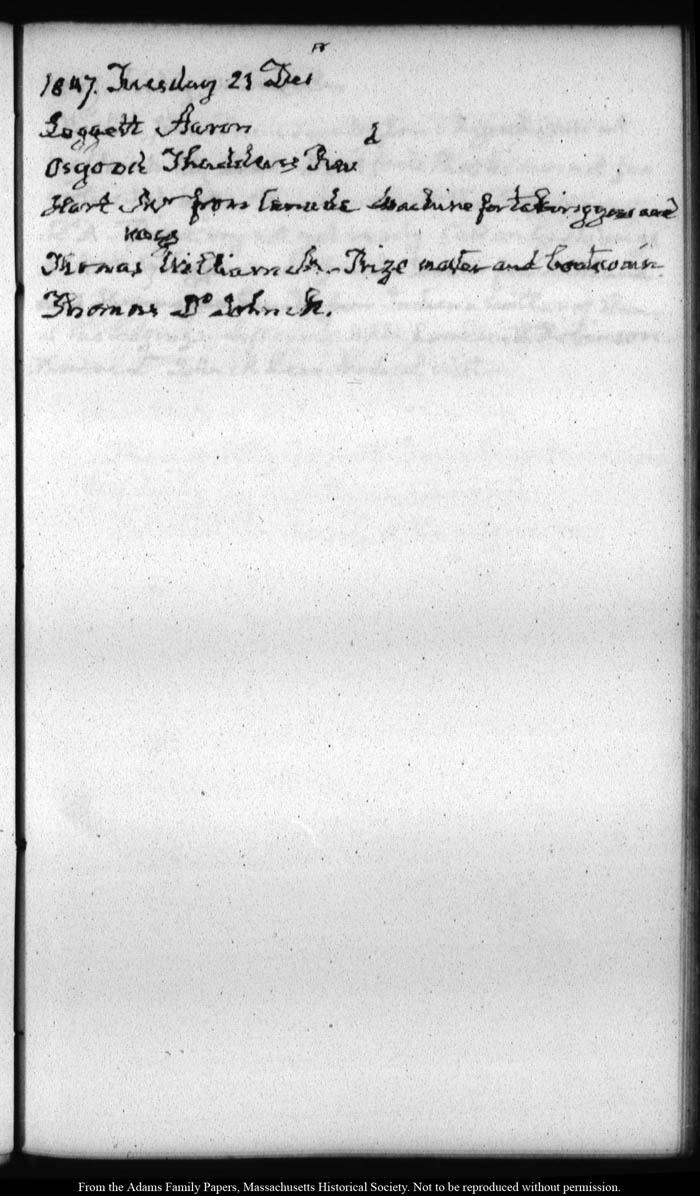 1847. Tuesday 21 Dec
Leggett Aaron
Osgood Thaddeus Revd
Hart from Canada Machine for taking yeas and
nays
Thomas William Sr. - Prize master and boatswain.
Thomas Do John R.
From the Adams Family Papers, Massachusetts Historical Society. Not to be reproduced without permission.